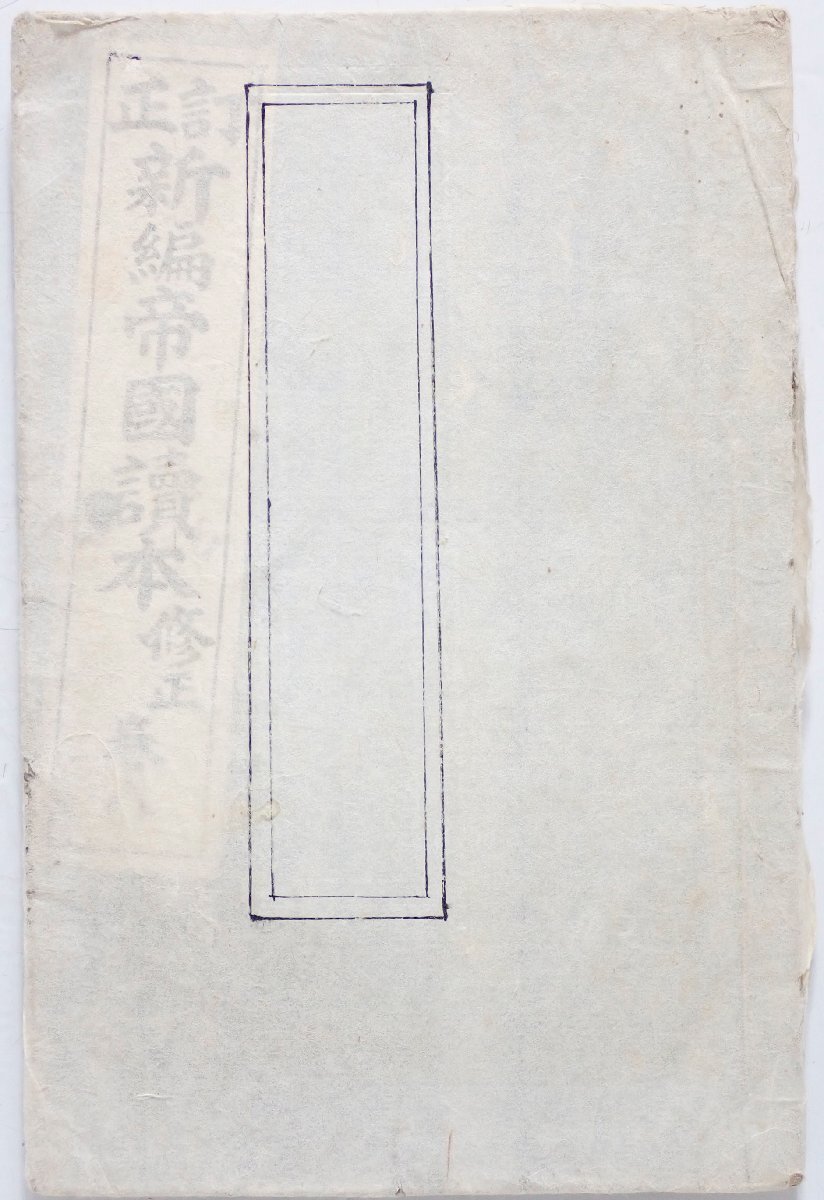 訂正
新編帝國讀本修正